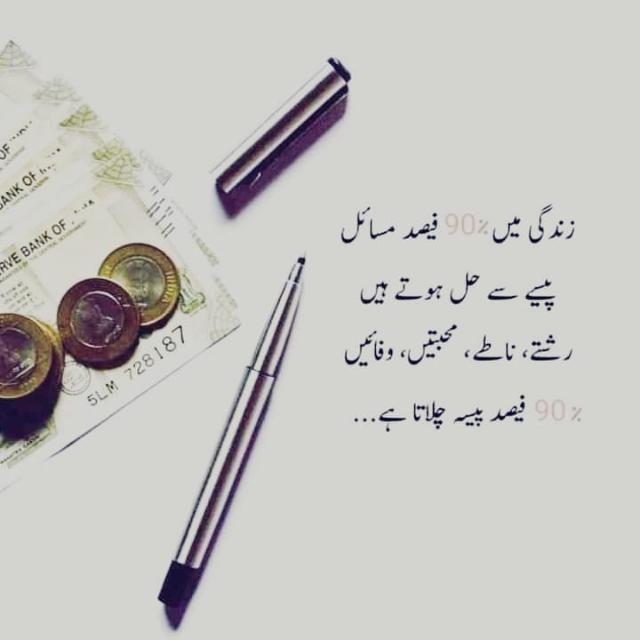 OF
BANK OF
RVE BANK OF
5LM 728187
زندگی میں 90٪ فیصد مسائل
پیسے سے حل ہوتے ہیں
رشتے، ناطے، محبتیں، وفائیں
90٪ فیصد پیسہ چلاتا ہے...